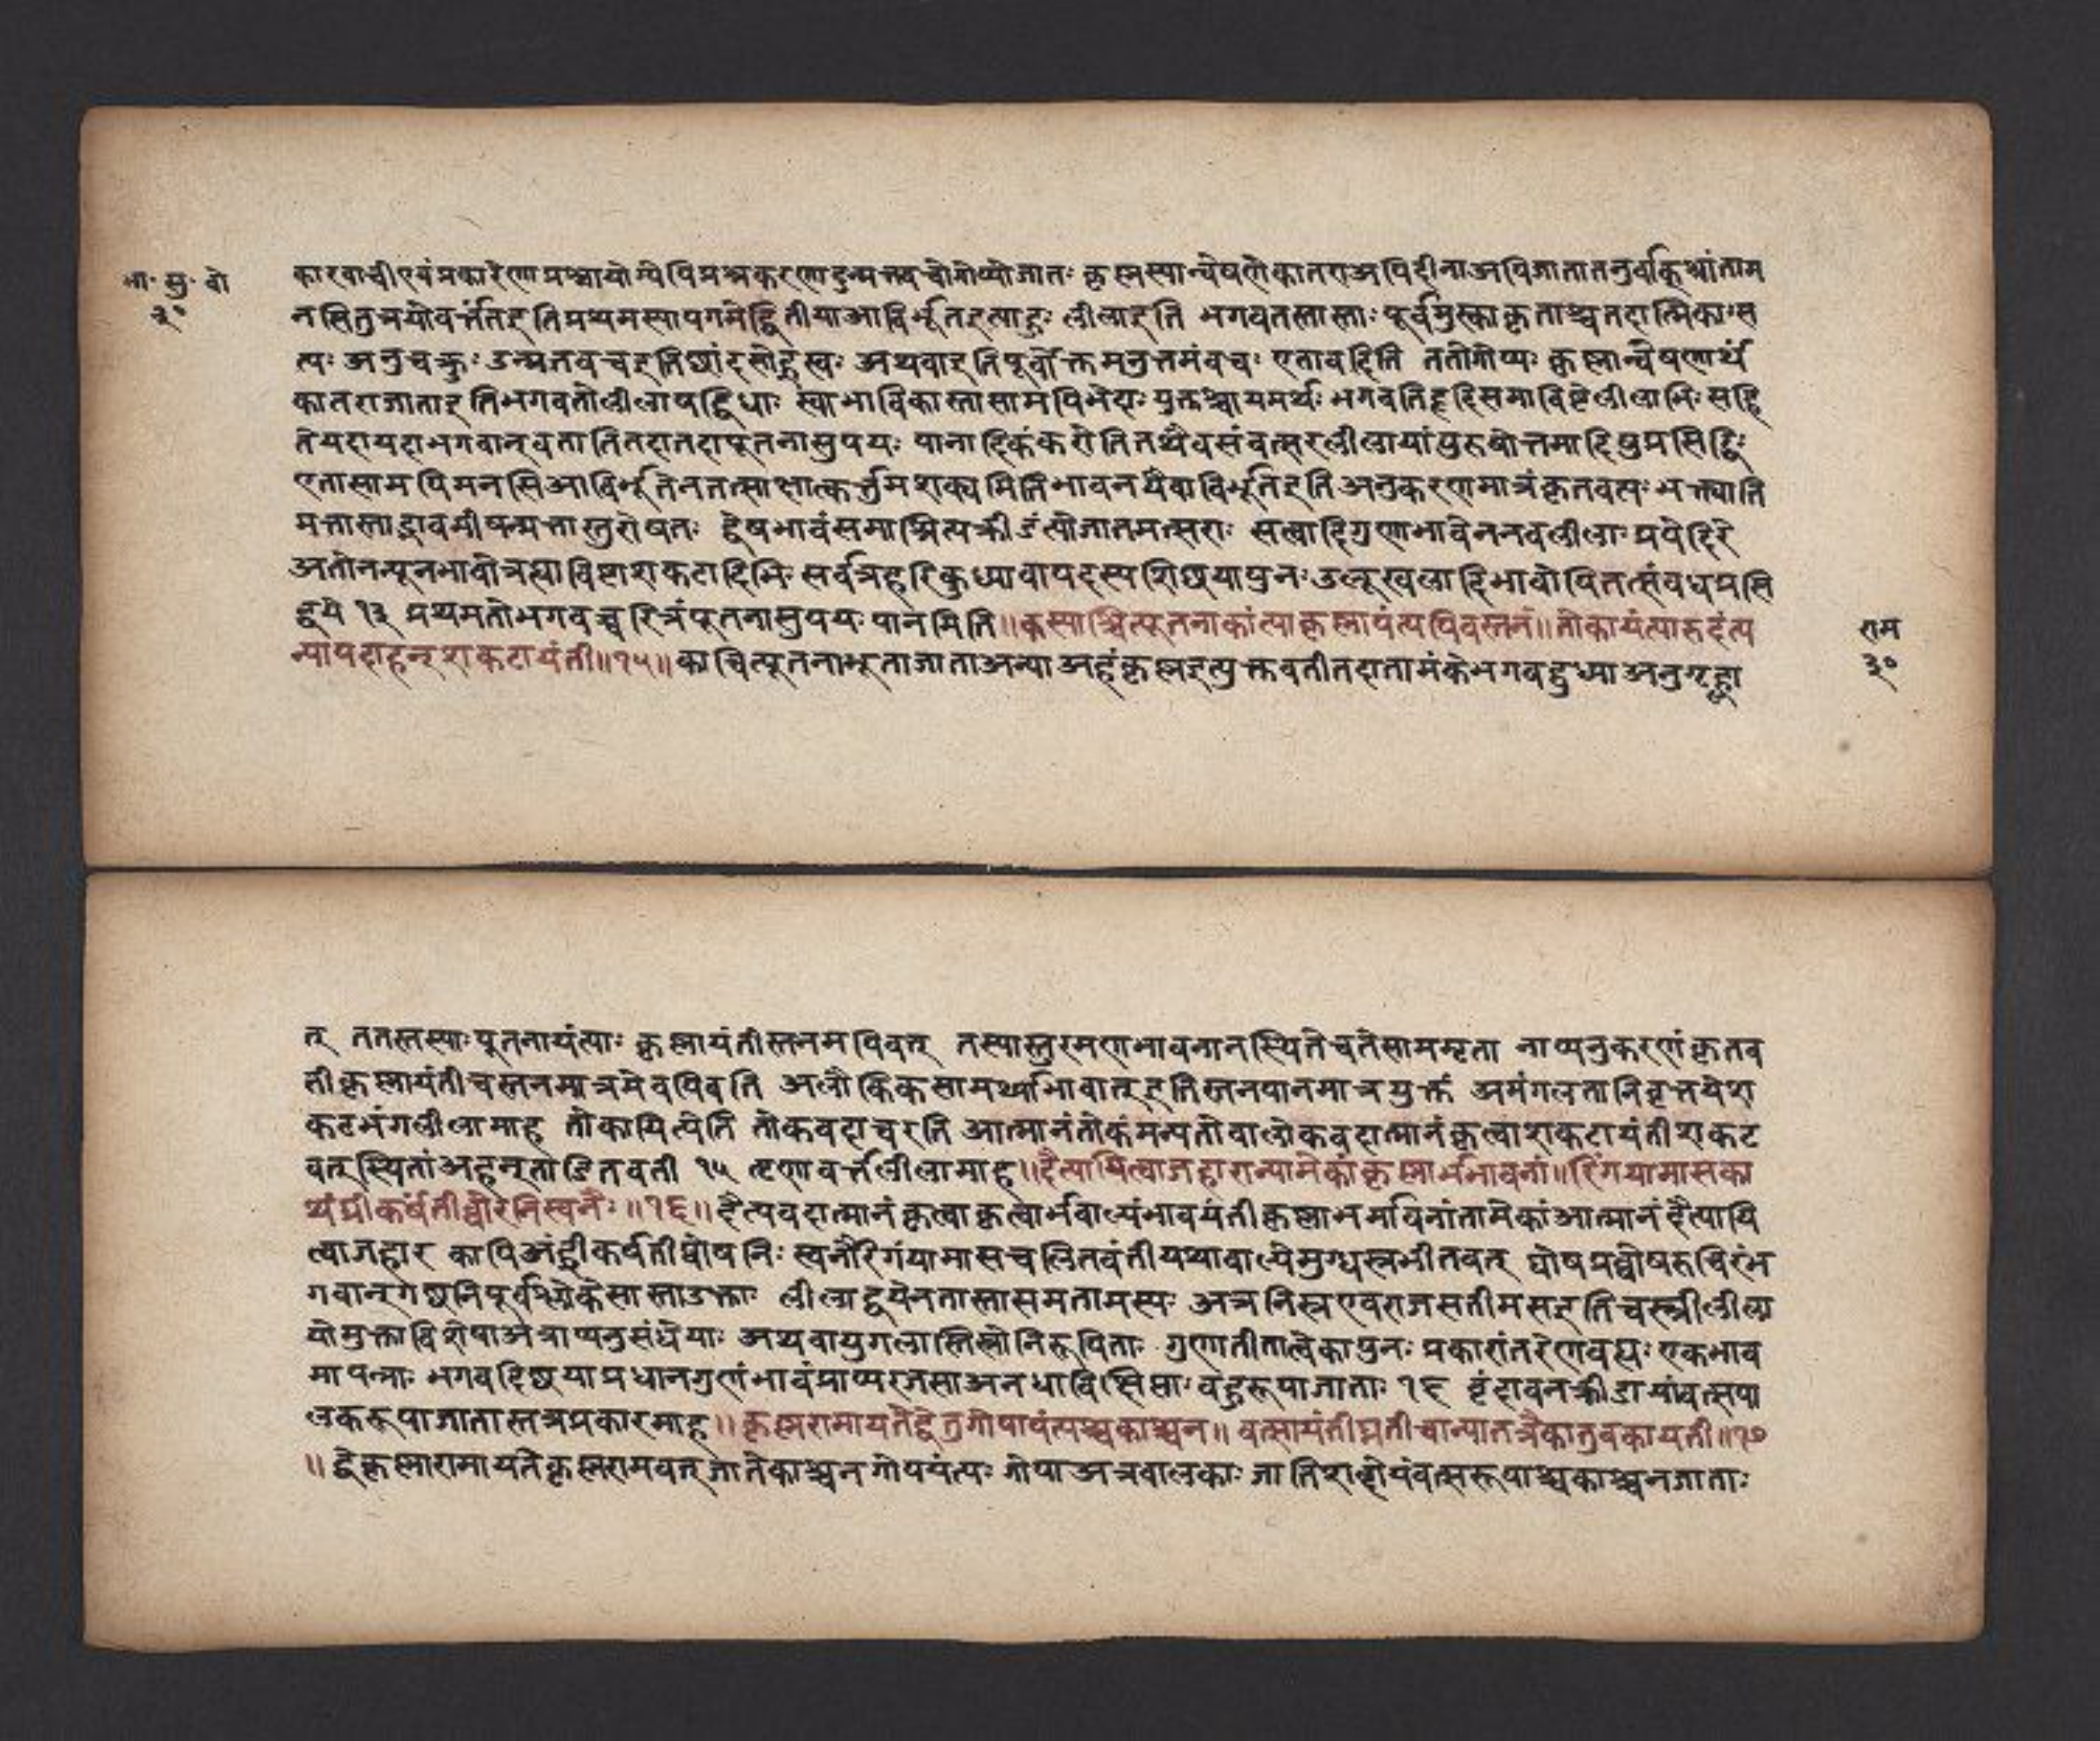 भा॰ सु॰ बो
३०
कारवाची एवं प्रकारेण प्रश्नायोग्येपि प्रश्नकरणादुन्मत्तवचोगोप्योजातः कृष्णस्यान्वेषणेकातराअपिदीनाअपिजातातनुर्वाक्श्रांताम
नसितुत्रयोवर्त्ततइतिप्रथमस्यापगमेद्वितीयाआविर्भूतइत्याहुः लीलाइति भगवतस्तास्ताः पूर्वमुक्ताकृताश्चतदात्मिकाःस
त्यः अनुचक्रुः उन्मतवचइतिछांदसोह्रस्वः अथवाइतिपूर्वोक्तमनुत्तमंवचः एतावदिति ततोगोप्यः कृष्णान्वेषणार्थं
कातराजाताइतिभगवतोलीलाषड्विधाः स्वाभाविकास्तासामपिभेदाः युक्तश्चायमर्थः भगवतिहृदिसमाविष्टेलीलाभिः सहि
तेयदायदाभगवान्वतातितदातदापूतनासुपयः पानादिकंकरोतितथैवसंवत्सरलीलायांपुरुषोत्तमादिषुप्रसिद्धिः
एतासामपिमनसिआविर्भूतेनतत्साक्षात्कर्त्तुमशक्यमितिभावनयैवाविर्भूतिइतिअनुकरणमात्रंकृतवत्यः भक्त्याति
मत्तास्ताद्भावमीषन्मत्तास्तुरोषतः द्वेषभावंसमाश्रित्यक्रीडंत्योजातमत्सराः सत्वादिगुणभावेननवलीलाः प्रपेदिरे
अतोनन्यूनभावोत्रह्याविष्टाशकटादिभिः सर्वत्रहरिबुध्यावापदस्पर्शिछयापुनः उलूखलादिभावोपितत्संबंधप्रसि
द्धये १३ प्रथमतोभगवच्चरित्रंपूतनासुपयःपानमिति॥कस्याश्चित्पूतनाकांत्याकृष्णायंत्यपिबस्तनं॥तोकायंत्यारुदंत्य
न्यापदाहन्शकटायंतीं॥१५॥काचित्पूतनाभूताजाताअन्याअहंकृष्णइत्युक्तवतीतदातामंकेभगवद्बुध्याअनुगृह्णा
राम
३०
त् ततस्तस्याःपूतनायंत्याः कृष्णायंतीस्तनमपिबत् तस्यास्तुरमणभावनानस्थितेचतेसाममृता नाप्यनुकरणंकृतव
तीकृष्णायंतीचस्तनमात्रमेवपिबति अलौकिकसामर्थ्याभावात्इतिस्तनपानमात्रयुक्तं अमंगलतानिवृत्तयेश
कटभंगलीलामाह तोकायित्वेति तोकवदाचरति आत्मानंतोकंमन्यतोबालोकवदात्मानंकृत्वाशकटायंतीशकट
वत्स्थितांअहन्ताडितवती १५ तृणावर्त्तलीलामाह॥दैत्यायित्वाजहारान्यामेकाकृष्णार्भभावनां॥रिंगयामासका
प्यंघ्रीकर्षतीघोरनिस्वनैः॥१६॥दैत्यवदात्मानंकृत्वाकृत्वार्भबाल्यंभावयंतीकृष्णाभमपिनांतामेकांआत्मानंदैत्यायि
त्वाजहार कापिअंघ्रीकर्षतीघोषनिः स्वनैरिगयामासचलितवंतीयथाबाल्येमुग्धस्त्नभीतवत् घोषप्रघोषरुचिरंभ
गवान्गछनिपूर्वश्लोकेसास्ताउक्ताः लीलाद्वयेनतास्तासमतामस्यः अत्रनिस्रएवराजसतीमसइतिचस्त्रीलीला
योमुक्ताविशेषाअत्राप्यनुसंधेयाः अथवायुगलास्तिस्रोनिरूपिताः गुणातीतात्वेकापुनः प्रकारांतरेणवस्यः एकभाव
मापन्नाः भगवदिछयाप्रधानगुणंभावंप्राप्यरजसाअनधाविक्षिप्ताः बहुरूपाजाताः १६ वृंदावनक्रीडायांवत्सपा
लकरूपाजातास्तत्रप्रकारमाह॥कृष्णरामायतेद्वेतुगोपायंत्यश्चकाश्चन॥वत्सायंतींघ्नतीचान्यातत्रैकातुबकायतीं॥१७
॥द्वेकृष्णारामायतेकृष्णरामवत्जातेकाश्चनगोपयंत्यः गोपाअत्रबालकाः जातिशब्दोयंवत्सरूपाश्चकाश्चनजाताः